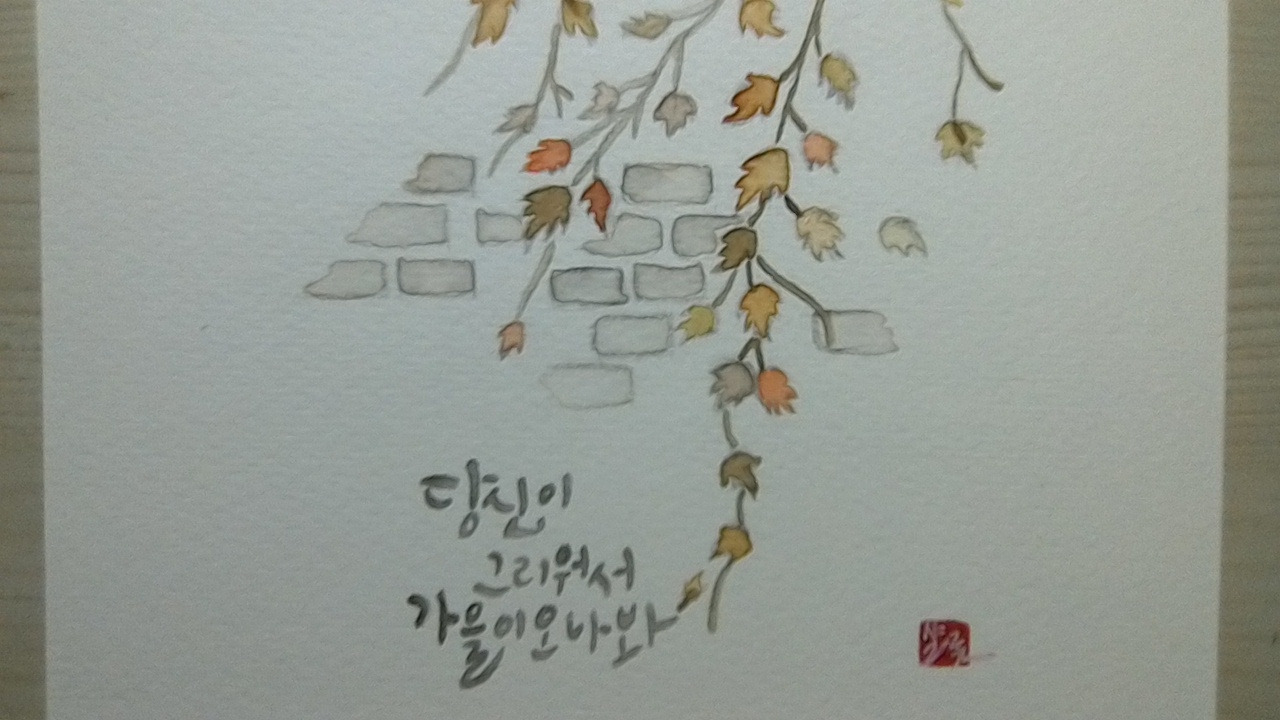 당신이
그리워서
가을이오나봐